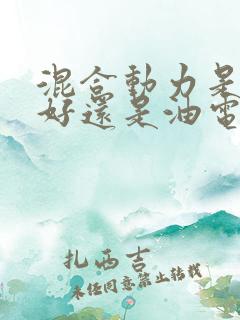 混合動力是
好還是油電
扎西吉
未經同意禁止轉載